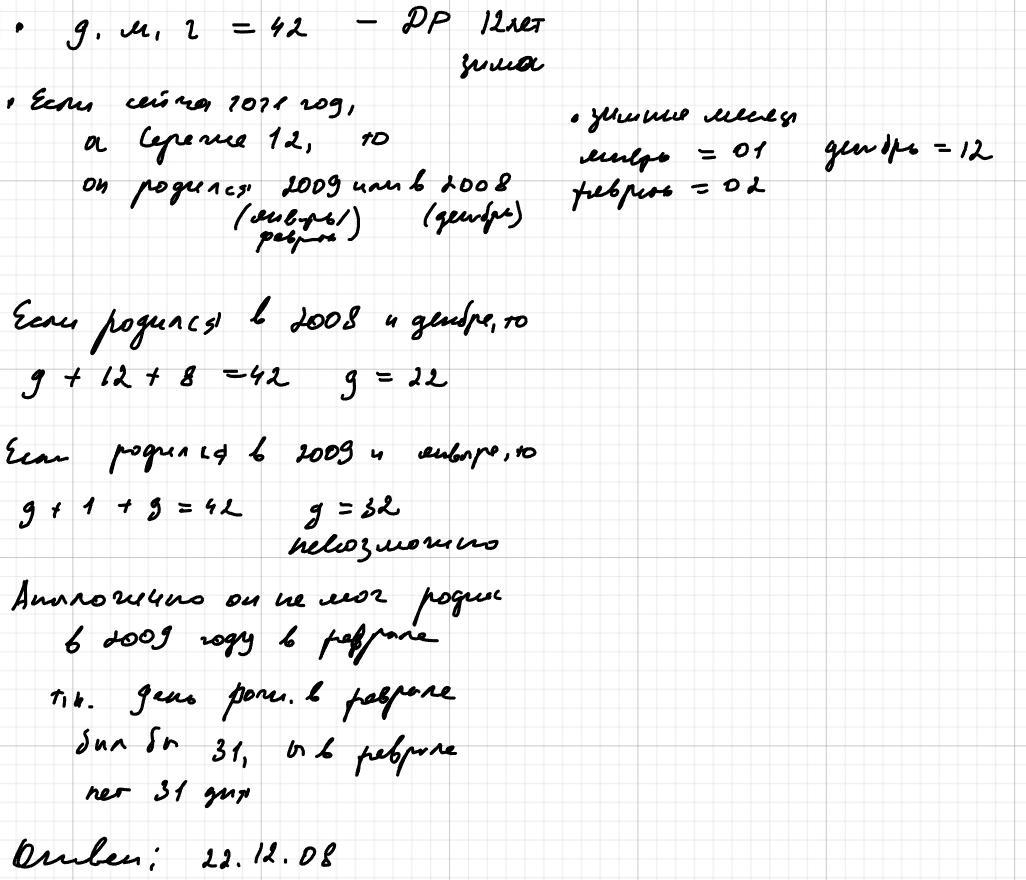 • д. м. г = 42 — ДР 12 лет
зима
• Если сейча 2021 год,
а Сереже 12, то
он родился 2009 или в 2008
(январь/
февраль)
(декабрь)
• зимние месяц
январь = 01 декабрь = 12
февраль = 02
Если родился в 2008 и декабре, то
д + 12 + 8 = 42 д = 22
Если родился в 2009 и январе, то
д + 1 + 9 = 42 д = 32
невозможно
Аналогично он не мог родис
в 2009 году в феврале
т.к. день рожд. в феврале
был бы 31, а в феврале
нет 31 дня
Ответ: 22.12.08